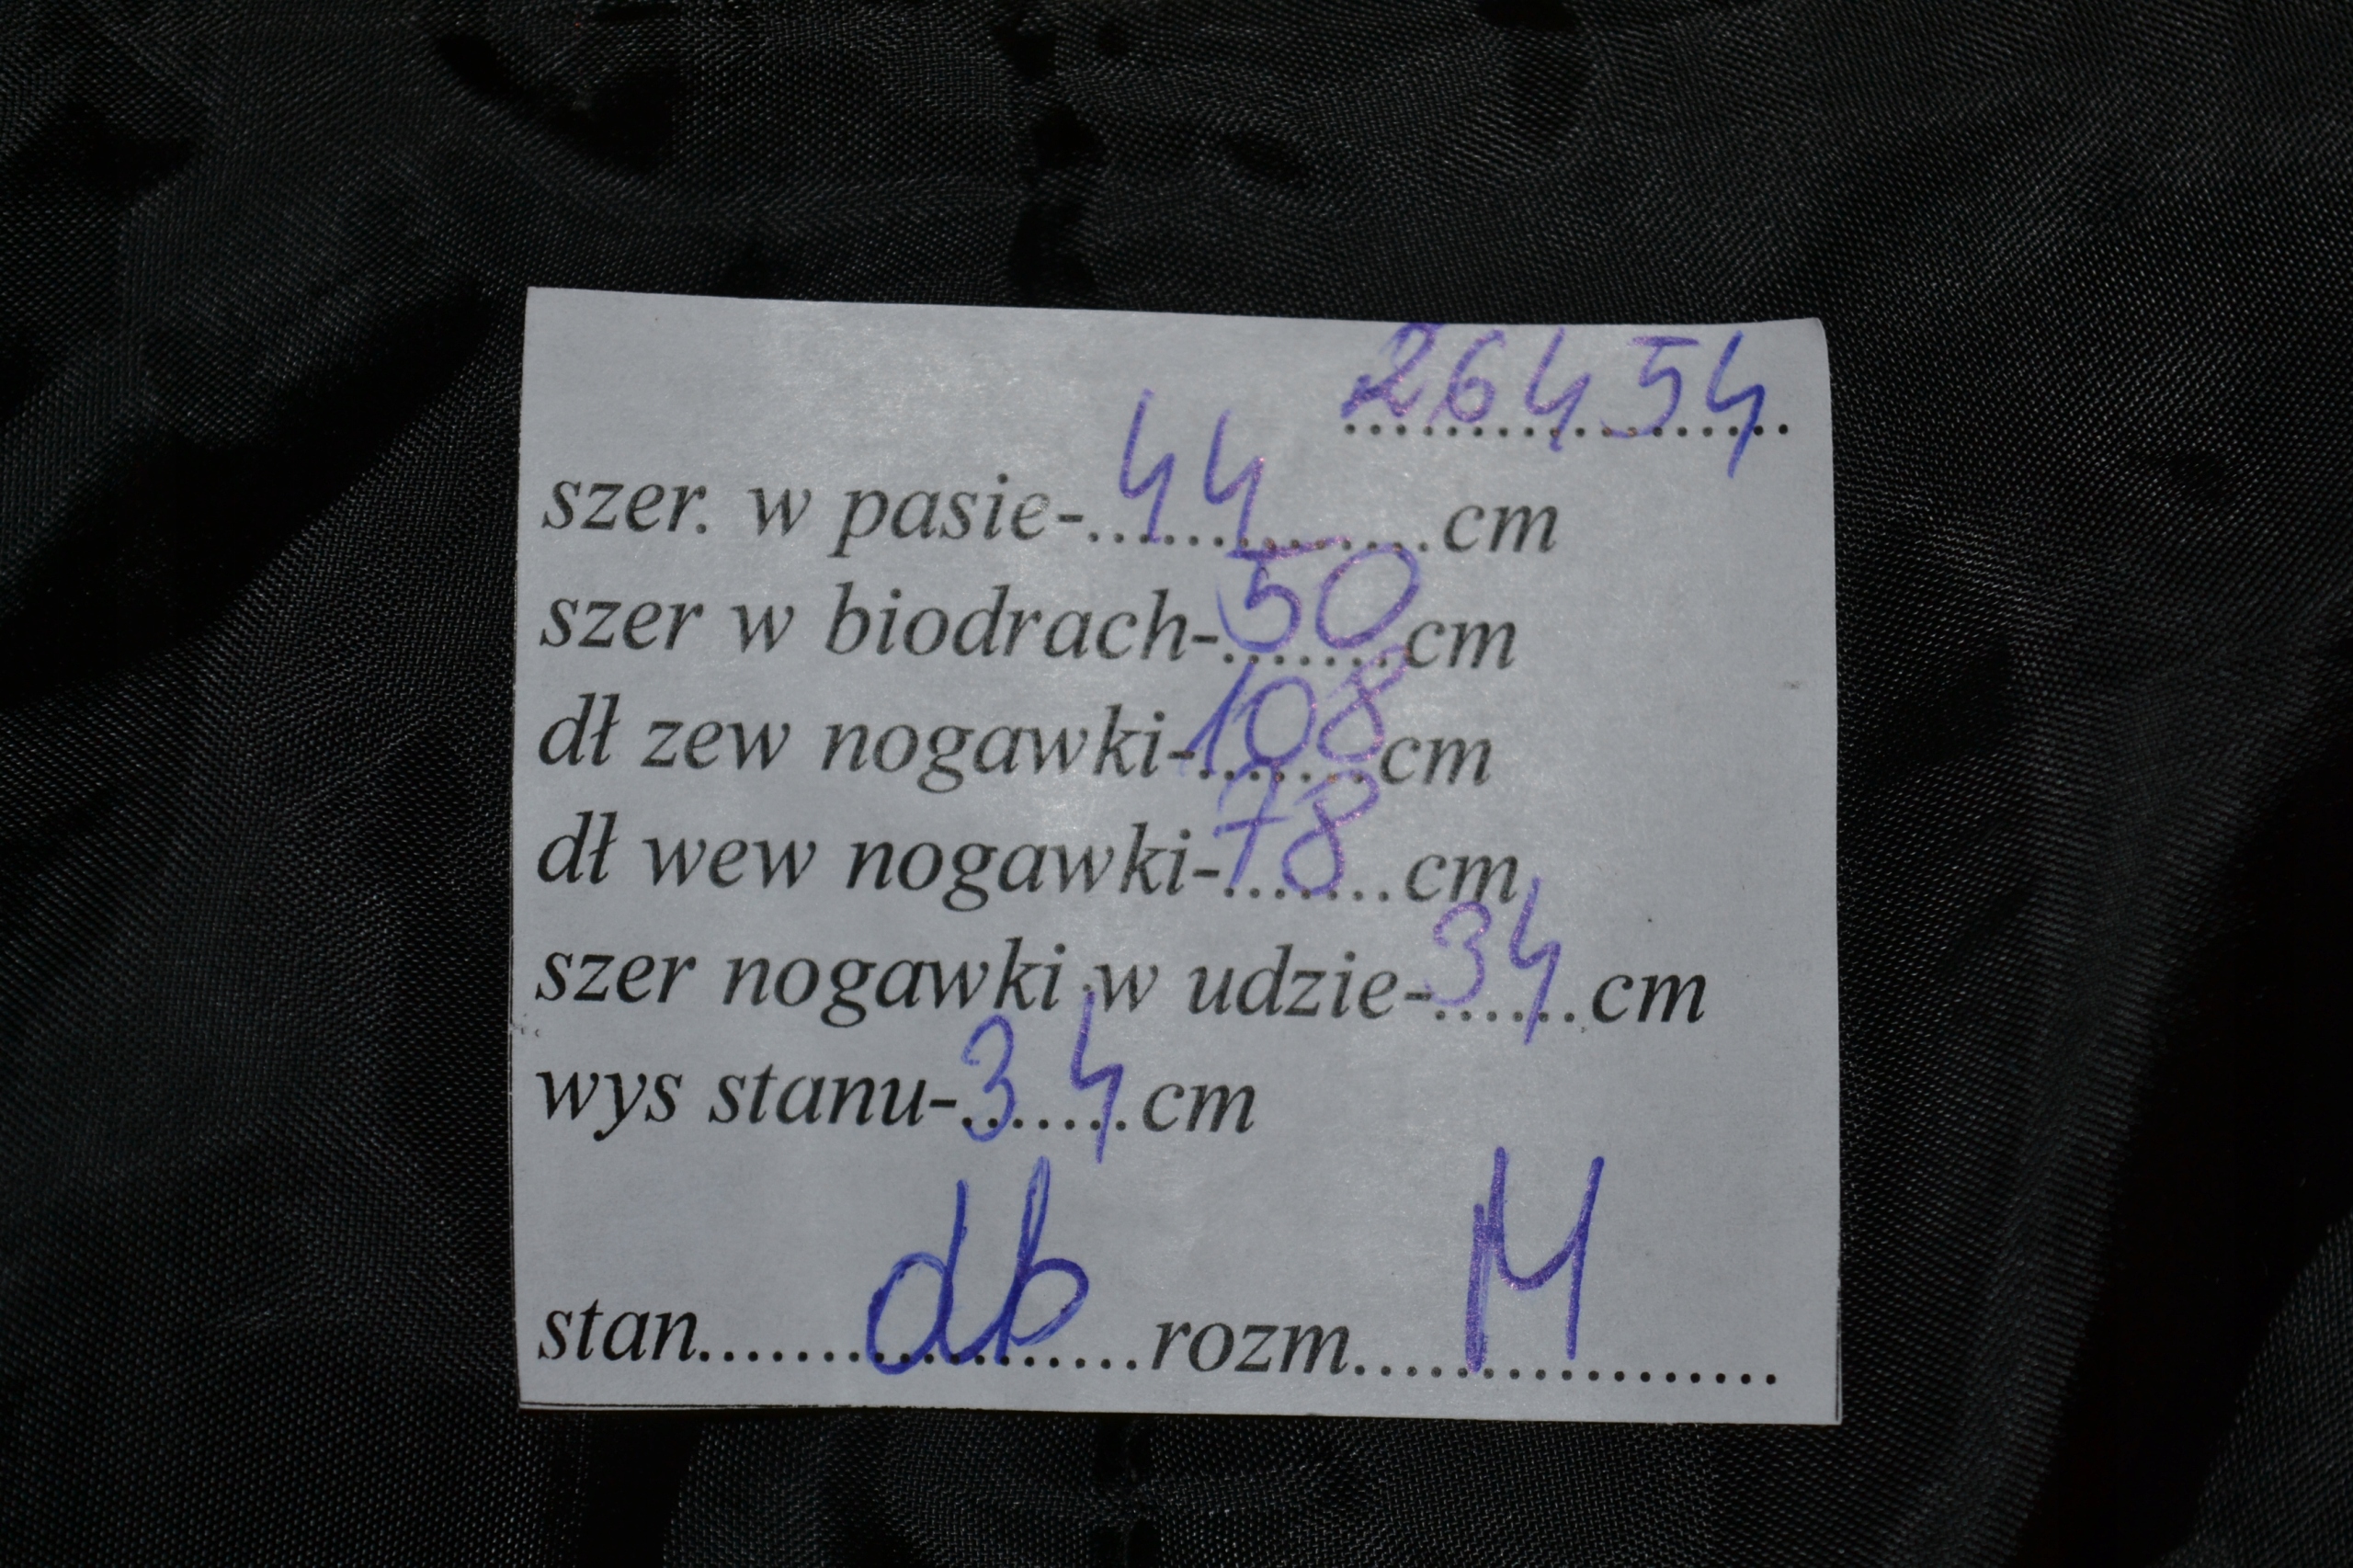 26454
szer. w pasie-44cm
szer w biodrach-50cm
dł zew nogawki-108cm
dł wew nogawki-78cm
szer nogawki w udzie-34cm
wys stanu-34cm
stan.......db.......rozm.......M.......